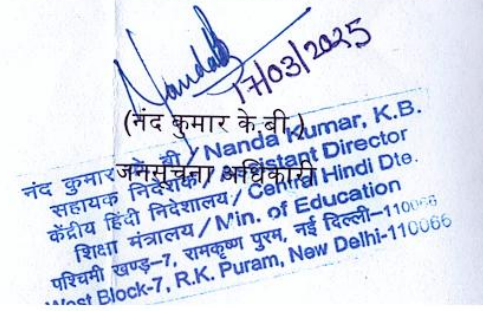 Nandak
17/03/2025
(नंद कुमार के.बी.)
जनसूचना अधिकारी
नंद कुमार के. बी./Nanda Kumar, K.B.
सहायक निदेशक/Assistant Director
केंद्रीय हिंदी निदेशालय/Central Hindi Dte.
शिक्षा मंत्रालय/Min. of Education
पश्चिमी खण्ड-7, रामकृष्ण पुरम, नई दिल्ली-110066
West Block-7, R.K. Puram, New Delhi-110066